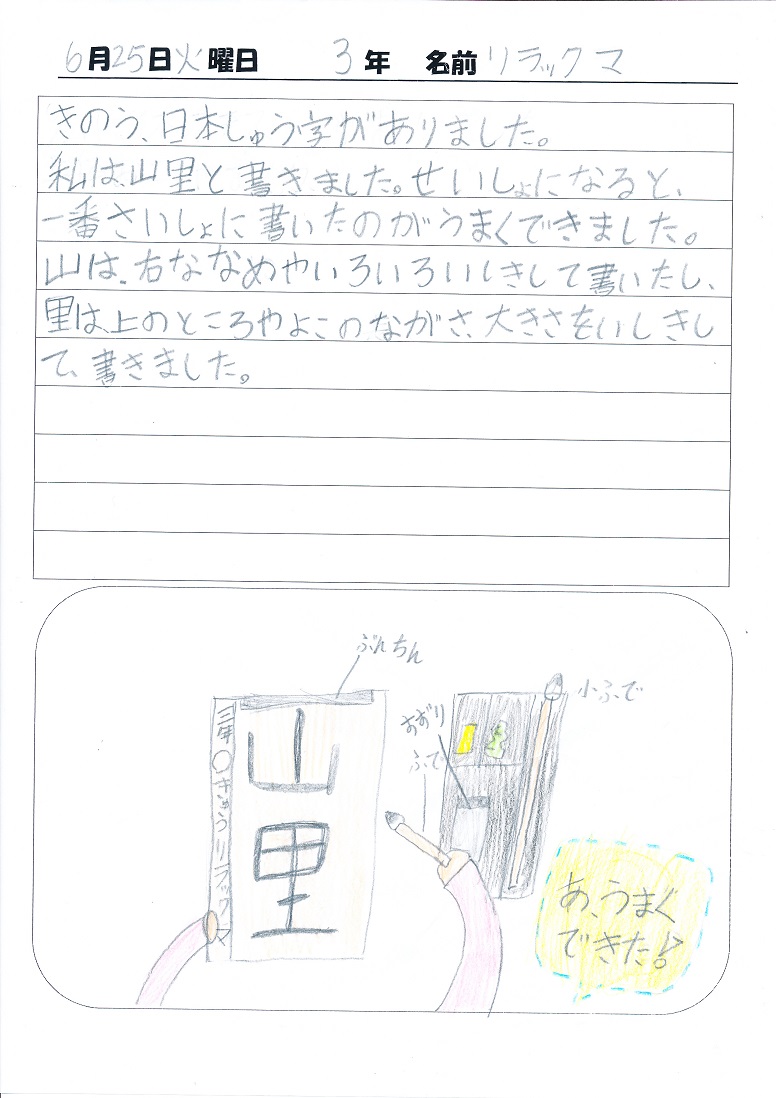 6月25日火曜日 3年 名前 リラックマ
きのう、日本しゅう字がありました。
私は、山里と書きました。せいしょになると、
一番さいしょに書いたのがうまくできました。
山は、右ななめやいろいろいしきして書いたし、
里は、上のところやよこのながさ、大きさをいしきし
て、書きました。
ぶんちん
小ふで
すずり
ふで
山里
三年〇きょうリラックマ
あ、うまく
できた!